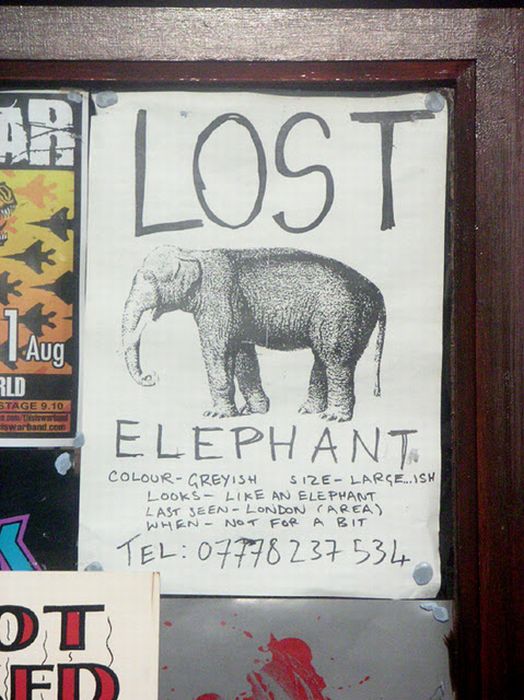 LOST
ELEPHANT
COLOUR- GREYISH SIZE- LARGE...ISH
LOOKS- LIKE AN ELEPHANT
LAST SEEN- LONDON (AREA)
WHEN- NOT FOR A BIT
TEL: 07778 237 534
AR
1 Aug
RLD
STAGE 9.10
iswarband.com
K
OT
ED